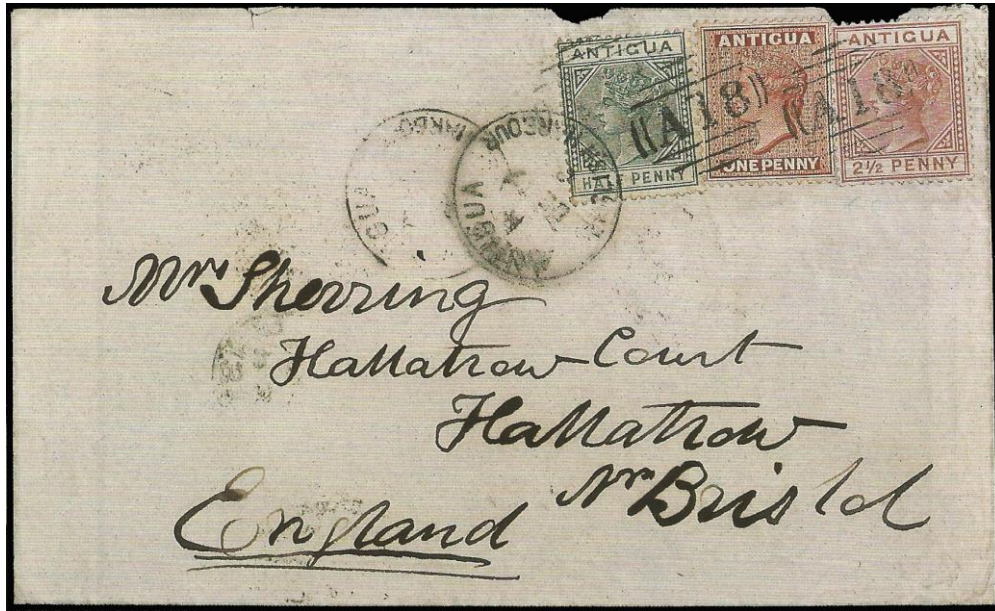 ANTIGUA
HALF PENNY
ANTIGUA
ONE PENNY
ANTIGUA
2½ PENNY
A18
A18
ANTIGUA
Mrs Sherring
Hallatrow Court
Hallatrow
Nr Bristol
England